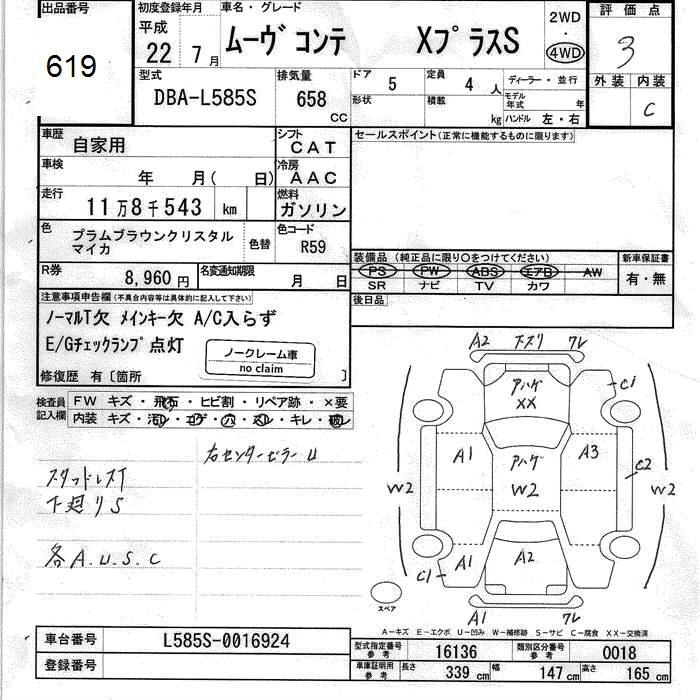 出品番号
619
初度登録年月
平成
22年 7月
車名・グレード
ムーヴコンテ XプラスS
2WD
・
4WD
評価点
3
外装 内装
C
型式
DBA-L585S
排気量
658
CC
ドア 5
定員 4 人
ディーラー・並行
形状
積載 kg
モデル年式 年
ハンドル 左・右
車歴
自家用
シフト
CAT
セールスポイント(正常に機能するものに限ります)
車検
年 月( 日)
冷房
AAC
走行
11万8千543 km
燃料
ガソリン
色
プラムブラウンクリスタル
マイカ
色替
色コード
R59
装備品 (純正品に限り○をつけてください)
新車保証書
PS PW ABS エアB AW
有・無
SR ナビ TV カワ
R券
8,960 円
名変通知期限
月 日
後日品
注意事項申告欄(不具合内容等は具体的に記入して下さい)
ノーマルT欠 メインキー欠 A/C入らず
E/Gチェックランプ点灯
ノークレーム車
no claim
修復歴 有〔箇所 〕
検査員
記入欄
FW キズ・飛石・ヒビ割・リペア跡・×要
内装 キズ・汚レ・コゲ・穴・スレ・キレ・破レ
右センターピラーU
スタッドレスT
下廻りS
各A.U.S.C
A2 スズリ ワレ
アハゲ
XX
C1
A1
アハゲ
W2
A3
C2
W2
W2
A1
A2
C1
A1 ワレ
スペア
A-キズ E-エクボ U-凹み W-補修跡 S-サビ C-腐食 XX-交換済
車台番号
L585S-0016924
登録番号
型式指定番号
参考
16136
類別区分番号
参考
0018
車庫証明用
参考
長さ 339 cm
幅 147 cm
高さ 165 cm